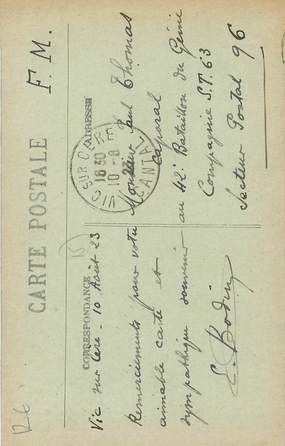 CARTE POSTALE
F.M.
CORRESPONDANCE
Vic sur Cère - 10 Août 23
Remerciements pour votre
aimable carte et
sympathique souvenir
E. Bodin
ADRESSE
VIC SUR CERE
18 30
10 - 8
CANTAL
Monsieur Paul Thomas
Caporal
au 42e Bataillon du Génie
Compagnie S.T. 63
Secteur Postal 96
Ré